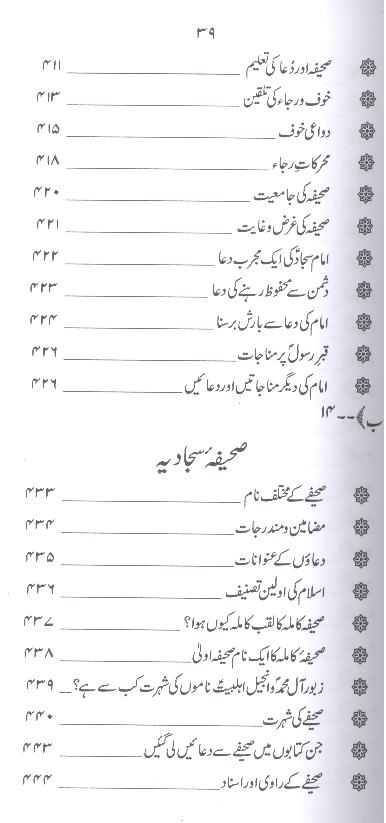 ۳۹
صحیفہ اور دُعا کی تعلیم ۴۱۱
خوف و رجاء کی تلقین ۴۱۳
دواعی خوف ۴۱۵
محرکاتِ رجاء ۴۱۸
صحیفہ کی جامعیت ۴۲۰
صحیفہ کی غرض و غایت ۴۲۱
امام سجادؑ کی ایک مجرب دعا ۴۲۲
دشمن سے محفوظ رہنے کی دعا ۴۲۳
امام کی دعا سے بارش برسنا ۴۲۴
قبرِ رسولؐ پر مناجات ۴۲۶
امام کی دیگر مناجاتیں اور دعائیں ۴۲۶
ب﴾--۱۴
صحیفۂ سجادیہ
صحیفے کے مختلف نام ۴۳۳
مضامین و مندرجات ۴۳۴
دعاؤں کے عنوانات ۴۳۵
اسلام کی اولین تصنیف ۴۳۶
صحیفہ کاملہ کا لقب کاملہ کیوں ہوا؟ ۴۳۷
صحیفۂ کاملہ کا ایک نام صحیفہ اولیٰ ۴۳۸
زبور آل محمدؐ و انجیل اہلبیتؑ ناموں کی شہرت کب سے ہے؟ ۴۳۹
صحیفے کی شہرت ۴۴۰
جن کتابوں میں صحیفے سے دعائیں لی گئیں ۴۴۳
صحیفے کے راوی اور اسناد ۴۴۴